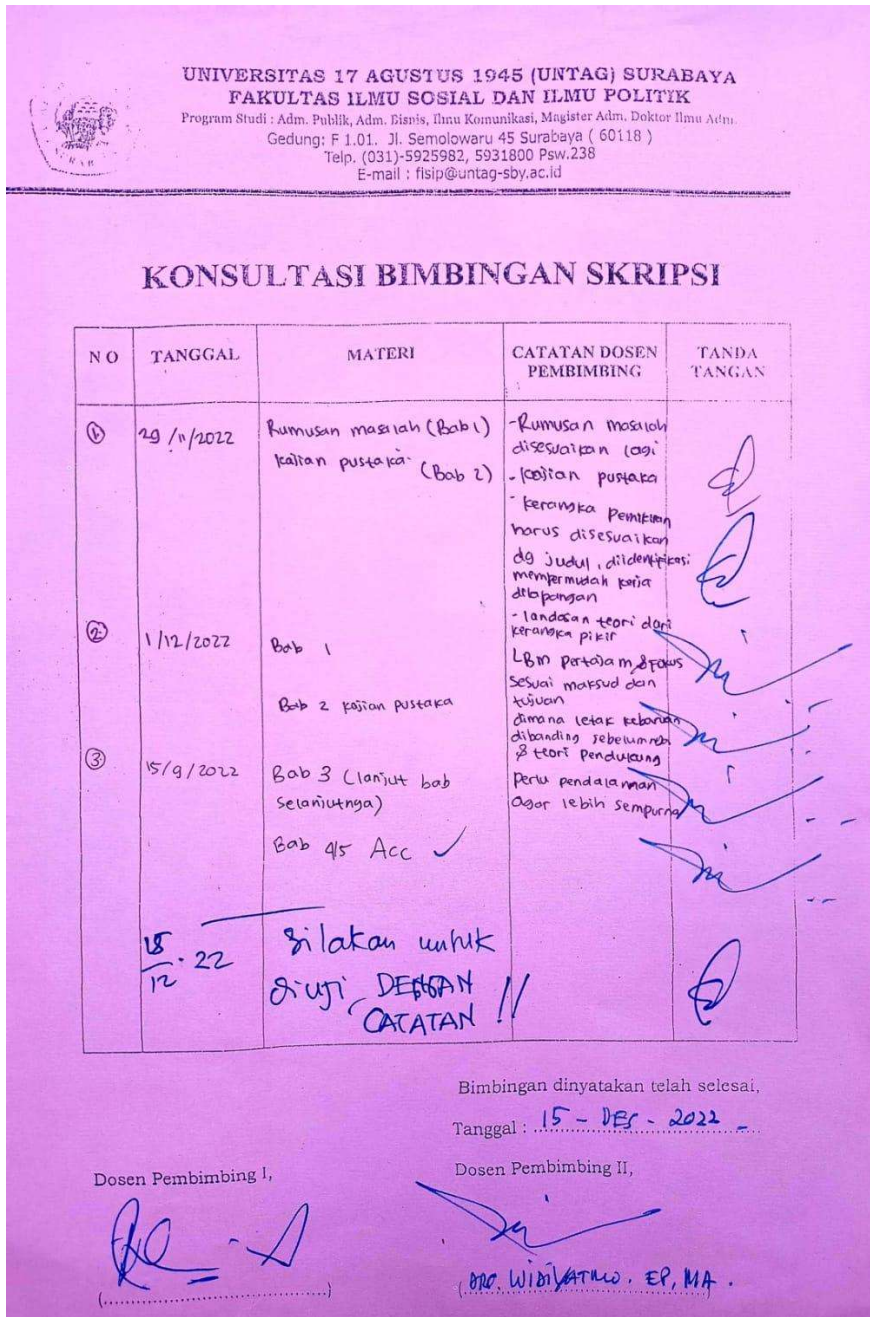 UNIVERSITAS 17 AGUSTUS 1945 (UNTAG) SURABAYA
FAKULTAS ILMU SOSIAL DAN ILMU POLITIK
Program Studi : Adm. Publik, Adm. Bisnis, Ilmu Komunikasi, Magister Adm. Doktor Ilmu Adm.
Gedung: F 1.01. Jl. Semolowaru 45 Surabaya ( 60118 )
Telp. (031)-5925982, 5931800 Psw.238
E-mail : fisip@untag-sby.ac.id
KONSULTASI BIMBINGAN SKRIPSI
NO TANGGAL MATERI CATATAN DOSEN PEMBIMBING TANDA TANGAN
1 29/11/2022 Rumusan masalah (Bab 1)
kajian pustaka (Bab 2)
- Rumusan masalah
disesuaikan lagi
- kajian pustaka
- kerangka Pemikiran
harus disesuaikan
dg judul, diidentifikasi
mempermudah kerja
dilapangan
- landasan teori dari
kerangka pikir
2. 1/12/2022 Bab 1
Bab 2 kajian pustaka
LBM pertajam & Fokus
sesuai maksud dan
tujuan
dimana letak kebaruan
dibanding sebelumnya
& teori Pendukung
3 15/9/2022 Bab 3 (lanjut bab
selanjutnya)
Perlu pendalaman
agar lebih sempurna
Bab 4/5 Acc ✓
12 . 22 Silakan untuk
diuji DENGAN
CATATAN !!
Bimbingan dinyatakan telah selesai,
Tanggal : 15 - DES - 2022 -
Dosen Pembimbing I, Dosen Pembimbing II,
(....................) ( WIDIYATMO. EP, MA. )